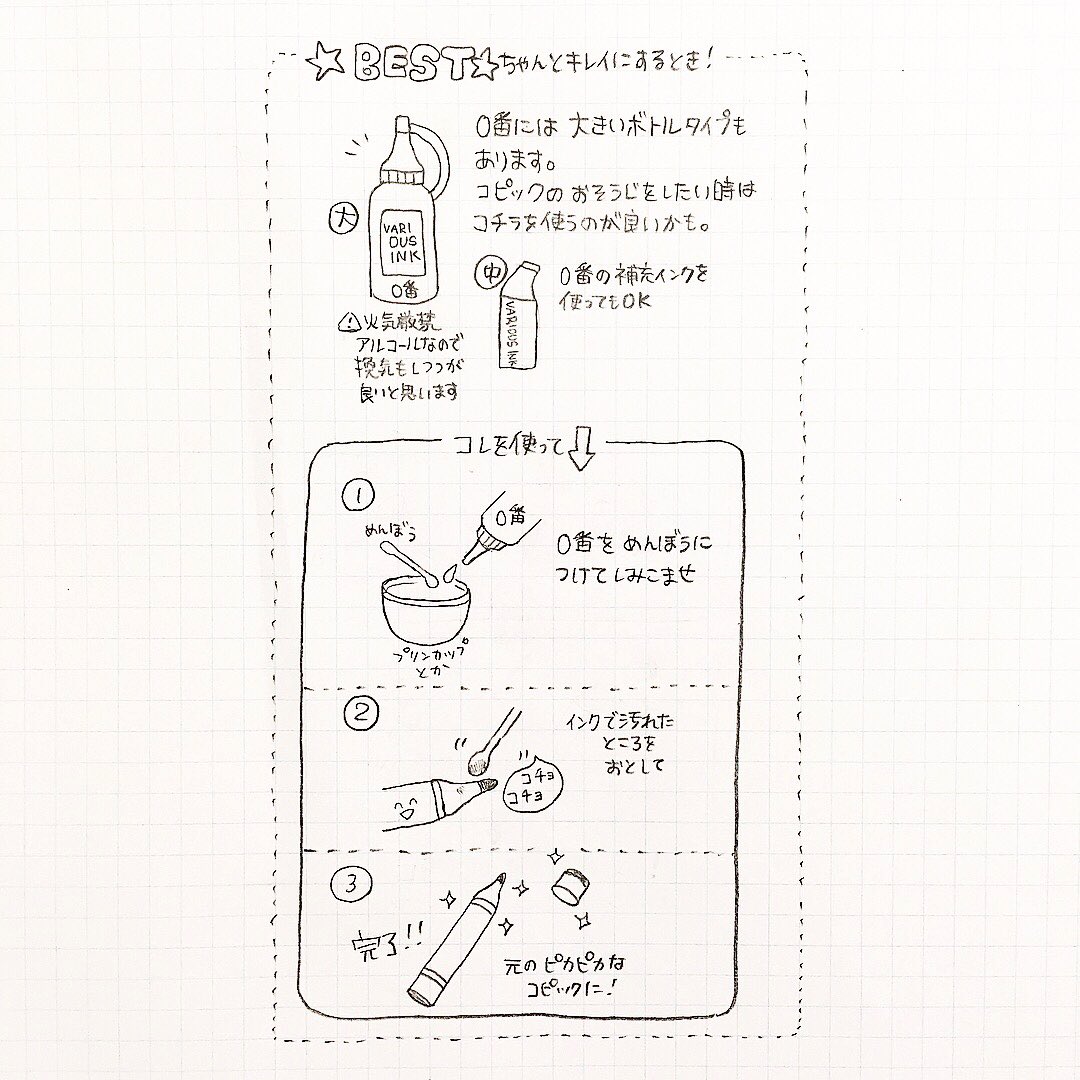 ☆BEST☆ちゃんとキレイにするとき!
0番には 大きいボトルタイプも
あります。
コピックの おそうじをしたい時は
コチラを使うのが良いかも。
大
VARI
OUS
INK
0番
⚠火気厳禁
アルコールなので
換気もしつつが
良いと思います
中
VARIOUS INK
0番の補充インクを
使ってもOK
コレを使って⇩
①
めんぼう
0番
プリンカップ
とか
0番を めんぼうに
つけて しみこませ
②
コチョ
コチョ
インクで汚れた
ところを
おとして
③
完了!!
元の ピカピカな
コピックに!